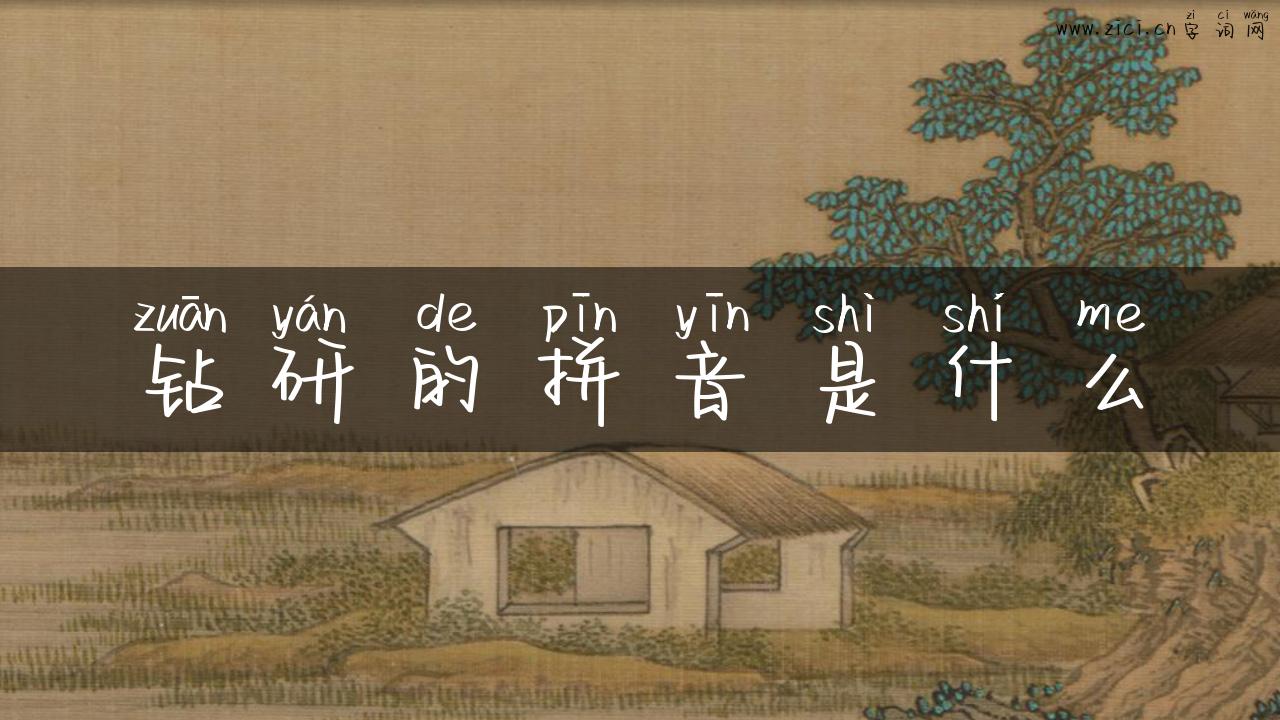 zì cí wǎng
www.zici.cn 字词网
zuān yán de pīn yīn shì shí me
钻研的拼音是什么